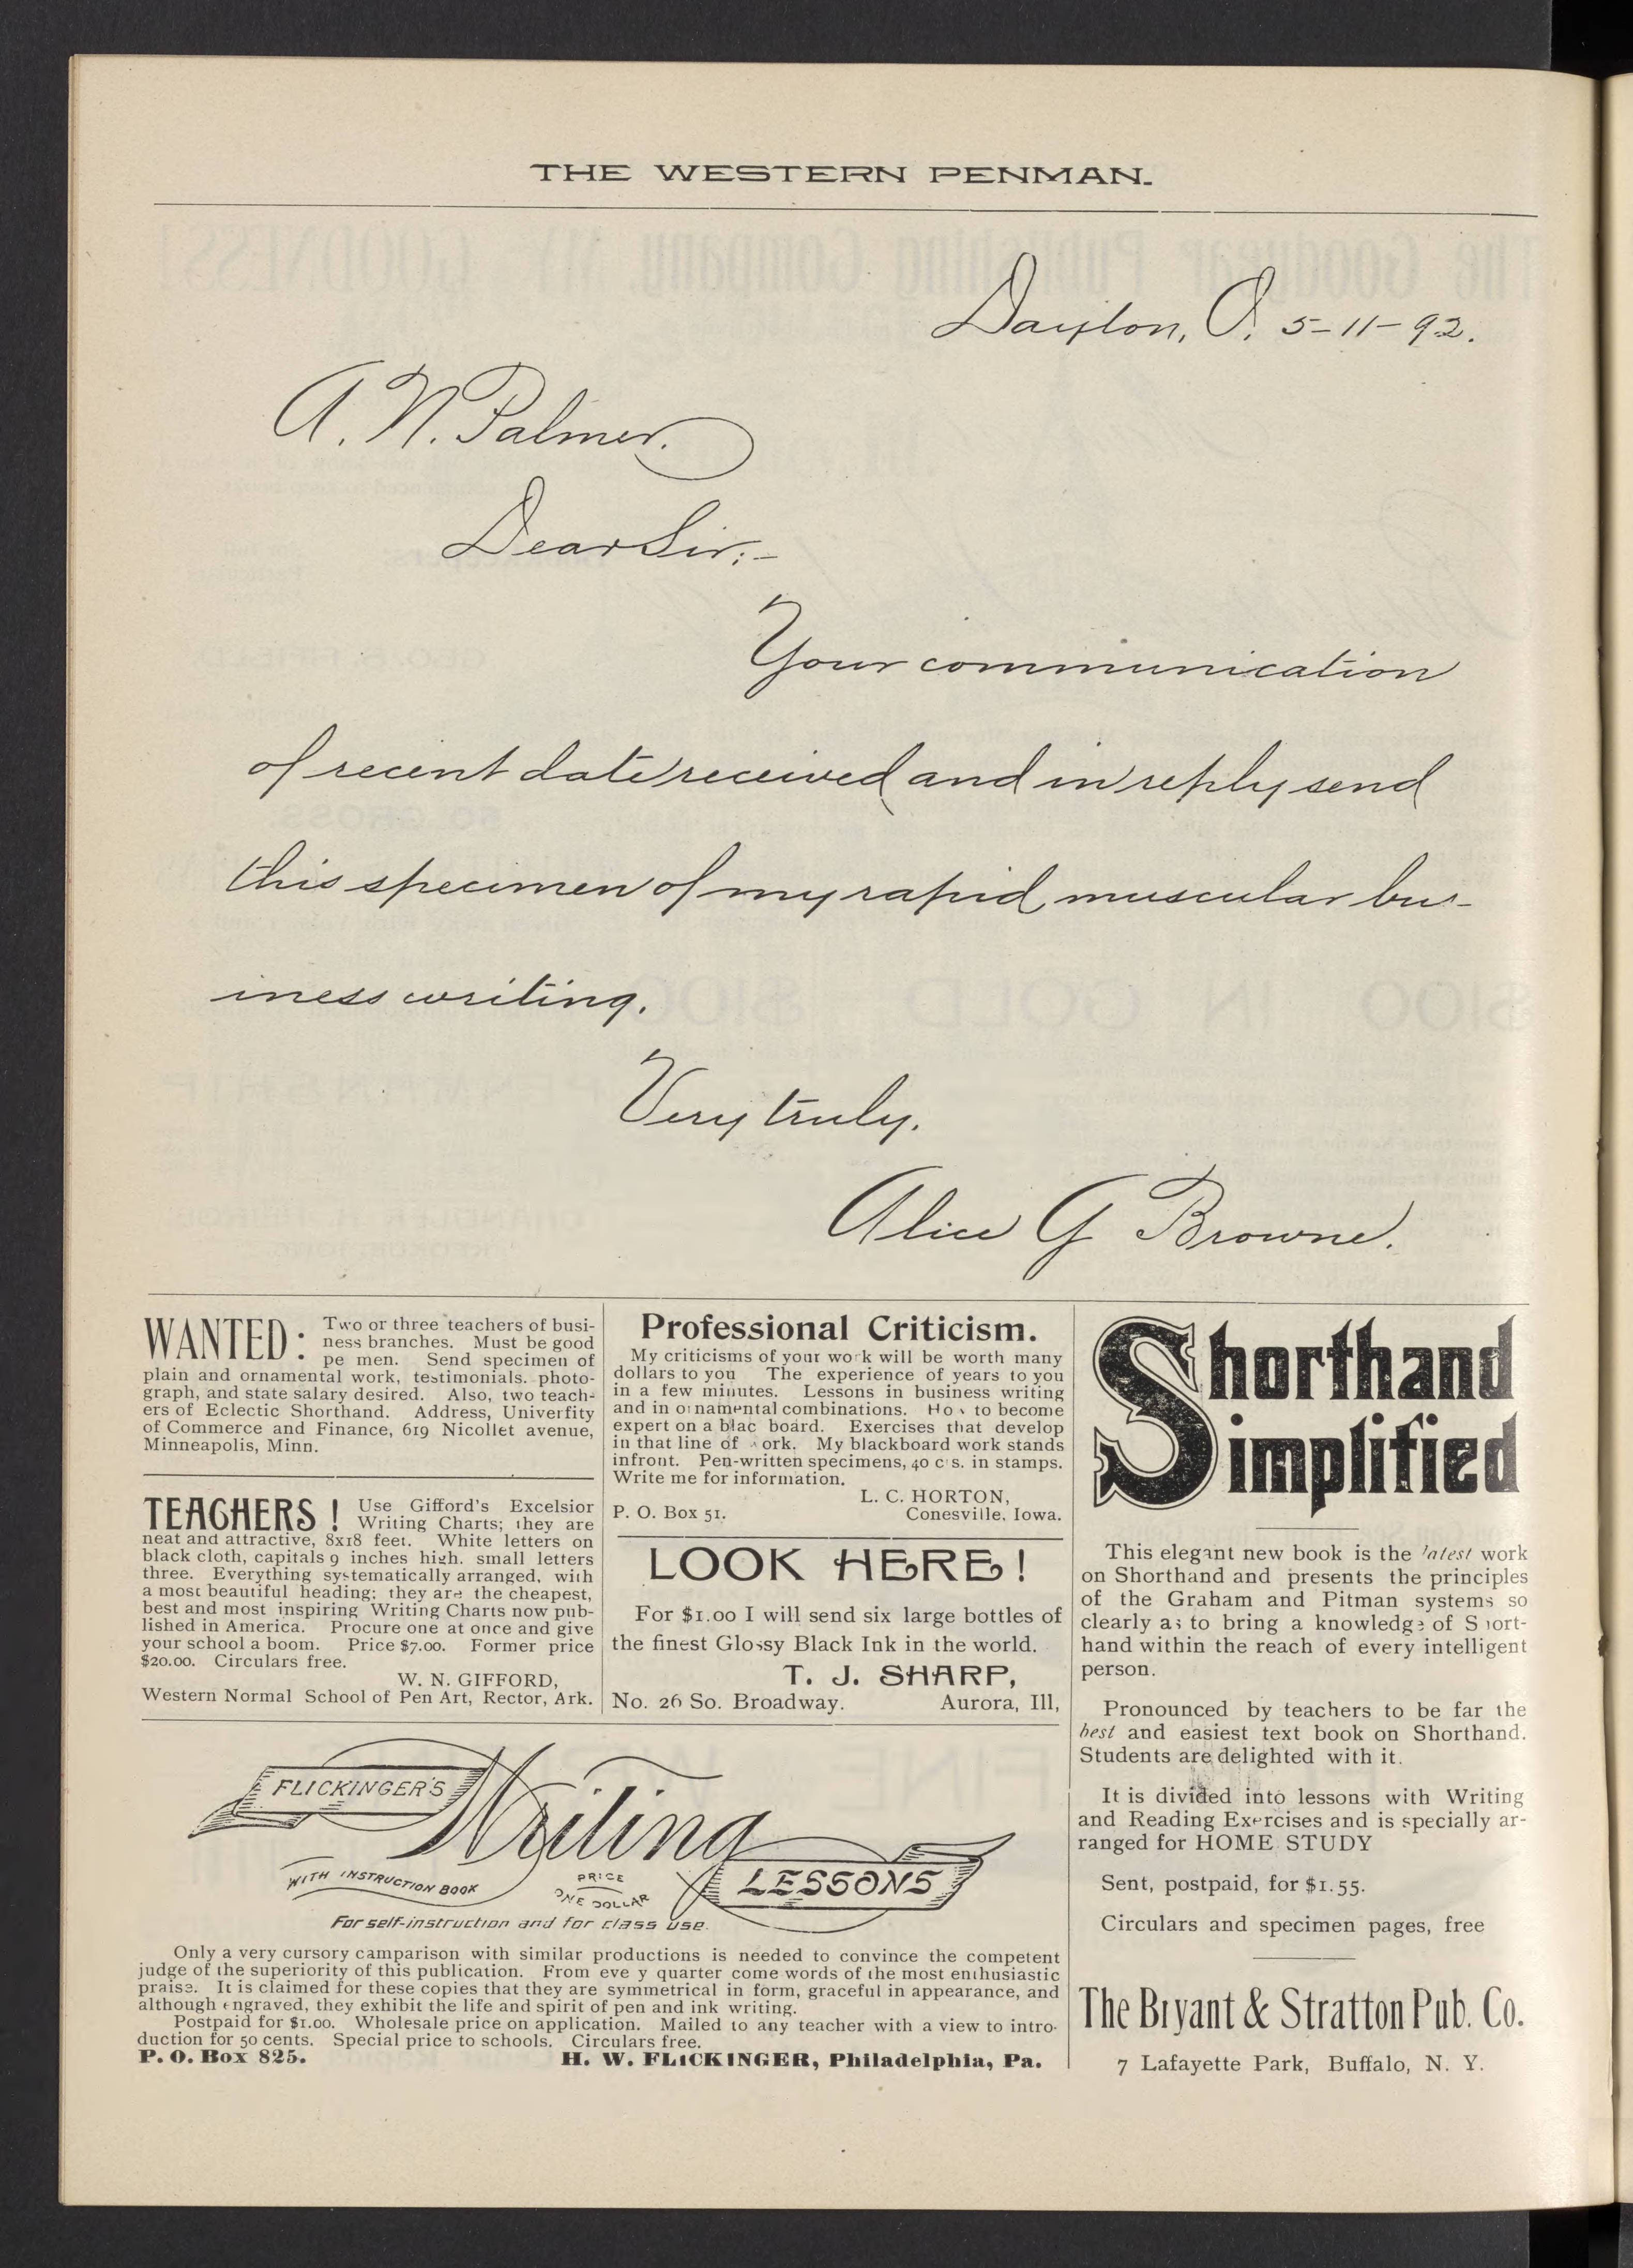 THE WESTERN PENMAN.
Dayton, O. 5-11-92.
A. N. Palmer.
Dear Sir:-
Your communication
of recent date received and in reply send
this specimen of my rapid muscular bus-
iness writing.
Very truly.
Alice G Browne.
WANTED: Two or three teachers of busi-
ness branches. Must be good
pe men. Send specimen of
plain and ornamental work, testimonials. photo-
graph, and state salary desired. Also, two teach-
ers of Eclectic Shorthand. Address, Univerfity
of Commerce and Finance, 619 Nicollet avenue,
Minneapolis, Minn.
TEACHERS! Use Gifford's Excelsior
Writing Charts; they are
neat and attractive, 8x18 feet. White letters on
black cloth, capitals 9 inches high. small letters
three. Everything systematically arranged, with
a most beautiful heading; they are the cheapest,
best and most inspiring Writing Charts now pub-
lished in America. Procure one at once and give
your school a boom. Price $7.00. Former price
$20.00. Circulars free.
W. N. GIFFORD,
Western Normal School of Pen Art, Rector, Ark.
Professional Criticism.
My criticisms of your work will be worth many
dollars to you The experience of years to you
in a few minutes. Lessons in business writing
and in ornamental combinations. How to become
expert on a blac board. Exercises that develop
in that line of work. My blackboard work stands
infront. Pen-written specimens, 40 c s. in stamps.
Write me for information.
L. C. HORTON,
P. O. Box 51. Conesville, Iowa.
LOOK HERE!
For $1.00 I will send six large bottles of
the finest Glossy Black Ink in the world.
T. J. SHARP,
No. 26 So. Broadway. Aurora, Ill,
FLICKINGER'S
Writing
LESSONS
WITH INSTRUCTION BOOK
PRICE
ONE DOLLAR
For self-instruction and for class use.
Only a very cursory camparison with similar productions is needed to convince the competent
judge of the superiority of this publication. From eve y quarter come words of the most enthusiastic
praise. It is claimed for these copies that they are symmetrical in form, graceful in appearance, and
although engraved, they exhibit the life and spirit of pen and ink writing.
Postpaid for $1.00. Wholesale price on application. Mailed to any teacher with a view to intro-
duction for 50 cents. Special price to schools. Circulars free.
P. O. Box 825. H. W. FLICKINGER, Philadelphia, Pa.
Shorthand
Simplified
This elegant new book is the latest work
on Shorthand and presents the principles
of the Graham and Pitman systems so
clearly as to bring a knowledge of Short-
hand within the reach of every intelligent
person.
Pronounced by teachers to be far the
best and easiest text book on Shorthand.
Students are delighted with it.
It is divided into lessons with Writing
and Reading Exercises and is specially ar-
ranged for HOME STUDY
Sent, postpaid, for $1.55.
Circulars and specimen pages, free
The Bryant & Stratton Pub. Co.
7 Lafayette Park, Buffalo, N. Y.